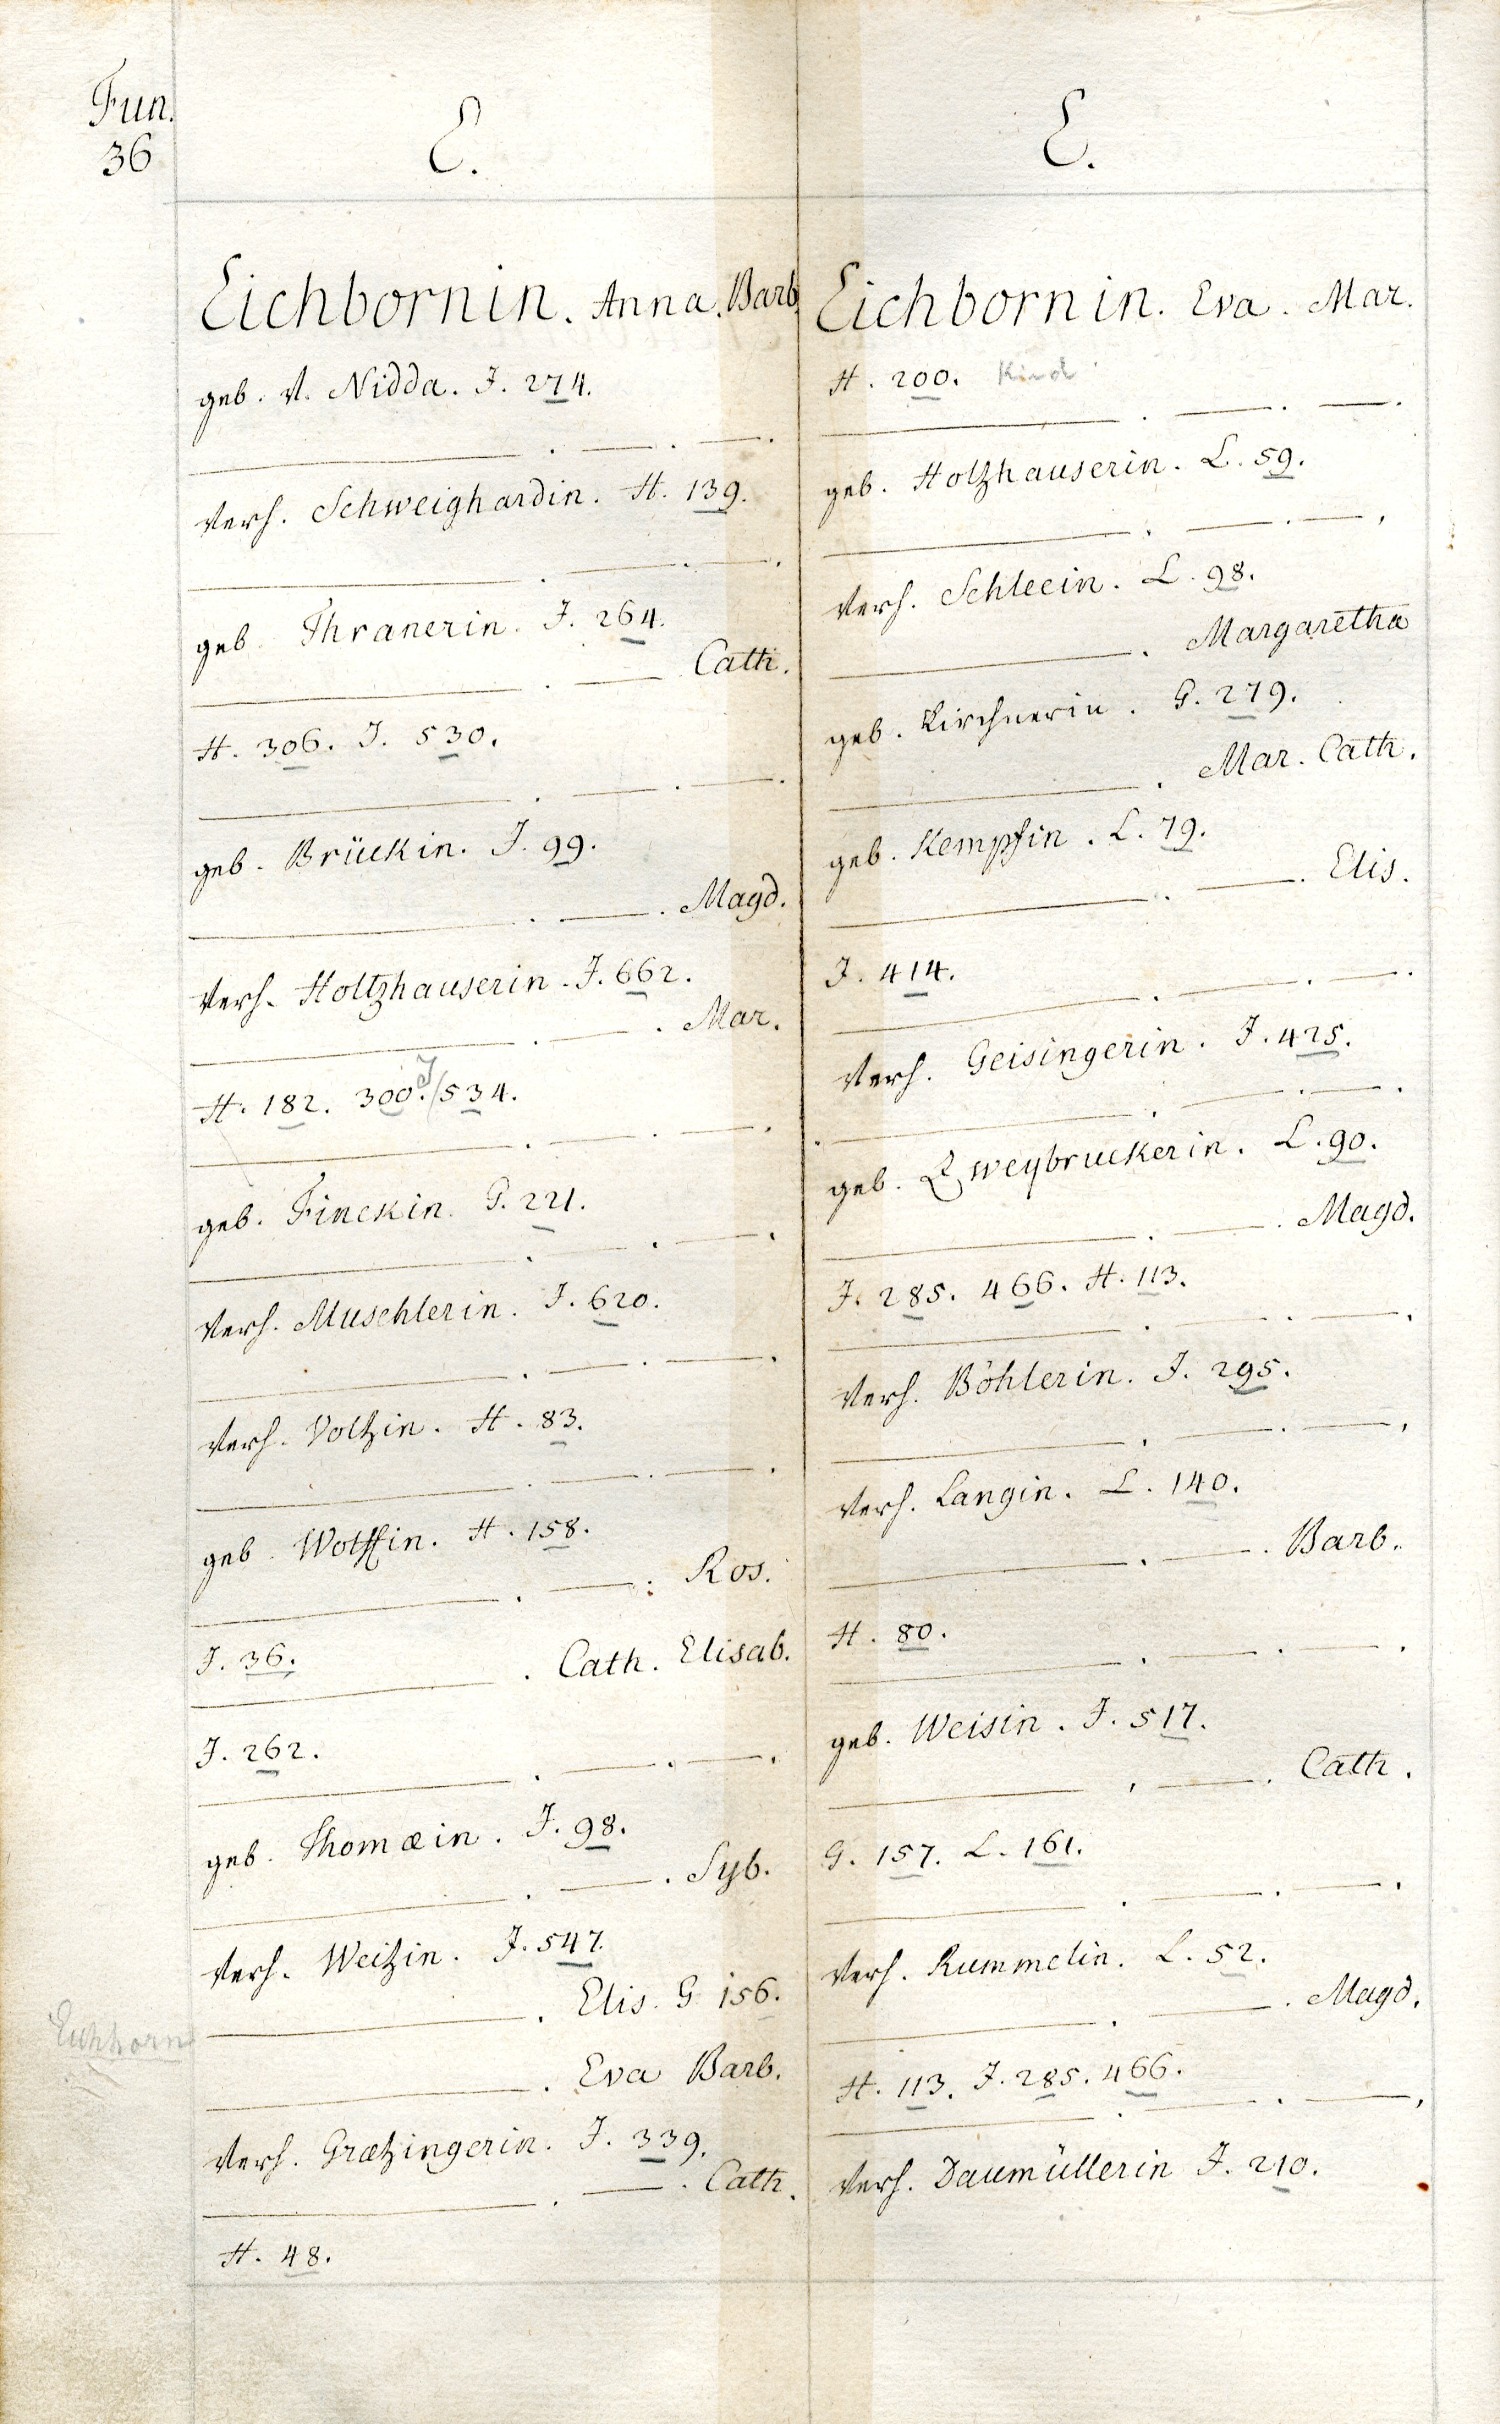 Fun.
36
E.
Eichbornin. Anna. Barb.
geb. V. Nidda. J. 274.
——— . — . — .
Verh. Schweighardin. H. 139.
——— . — . — .
geb. Thranerin. J. 264.
——— . — Cath.
H. 306. J. 530.
——— . — . — .
geb. Brückin. J. 99.
——— . — . Magd.
Verh. Holtzhauserin. J. 662.
——— . — . Mar.
H. 182. 300. J/534.
——— . — . — .
geb. Finckin. G. 221.
——— . — . — .
Verh. Muschlerin. J. 620.
——— . — . — .
Verh. Voltzin. H. 83.
——— . — . — .
geb. Wolffin. H. 158.
——— . — . Ros.
J. 36.
——— . Cath. Elisab.
J. 262.
——— . — . — .
geb. Thomæin. J. 98.
——— . — . Syb.
Verh. Weitzin. J. 547.
——— . Elis. G 156.
Eichhorn
——— . Eva Barb.
Verh. Grætzingerin. J. 339.
——— . — . Cath.
H. 48.
E.
Eichbornin. Eva. Mar.
H. 200. Kind
——— . — . — .
geb. Holtzhauserin. L. 59.
——— . — . — .
Verh. Schleein. L. 98.
——— . Margaretha
geb. Kirchnerin. G. 279.
——— . Mar. Cath.
geb. Kempfin. L. 79.
——— . — . Elis.
J. 414.
——— . — . — .
Verh. Geisingerin. J. 425.
——— . — . — .
geb. Zweybruckerin. L. 90.
——— . — . Magd.
J. 285. 466. H. 113.
——— . — . — .
Verh. Böhlerin. J. 295.
——— . — . — .
Verh. Langin. L. 140.
——— . — . Barb.
H. 80.
——— . — . — .
geb. Weisin. J. 517.
——— . — . Cath.
G. 157. L. 161.
——— . — . — .
Verh. Rummelin. L. 52.
——— . — . Magd.
H. 113. J. 285. 466.
——— . — . — .
Verh. Daumüllerin J. 210.